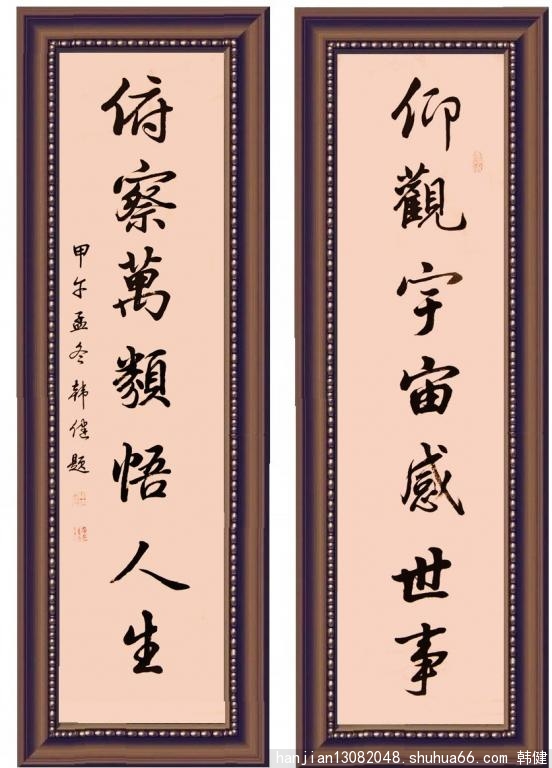 仰觀宇宙感世事
俯察萬類悟人生
甲午孟冬韩健題
hanjian13082048.shuhua66.com 韩健